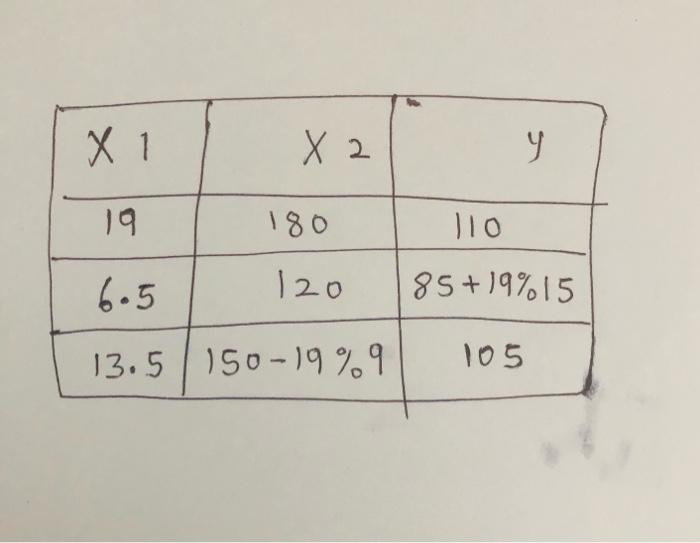 X 1 X 2 y
19 180 110
6.5 120 85+19%15
13.5 150-19%9 105